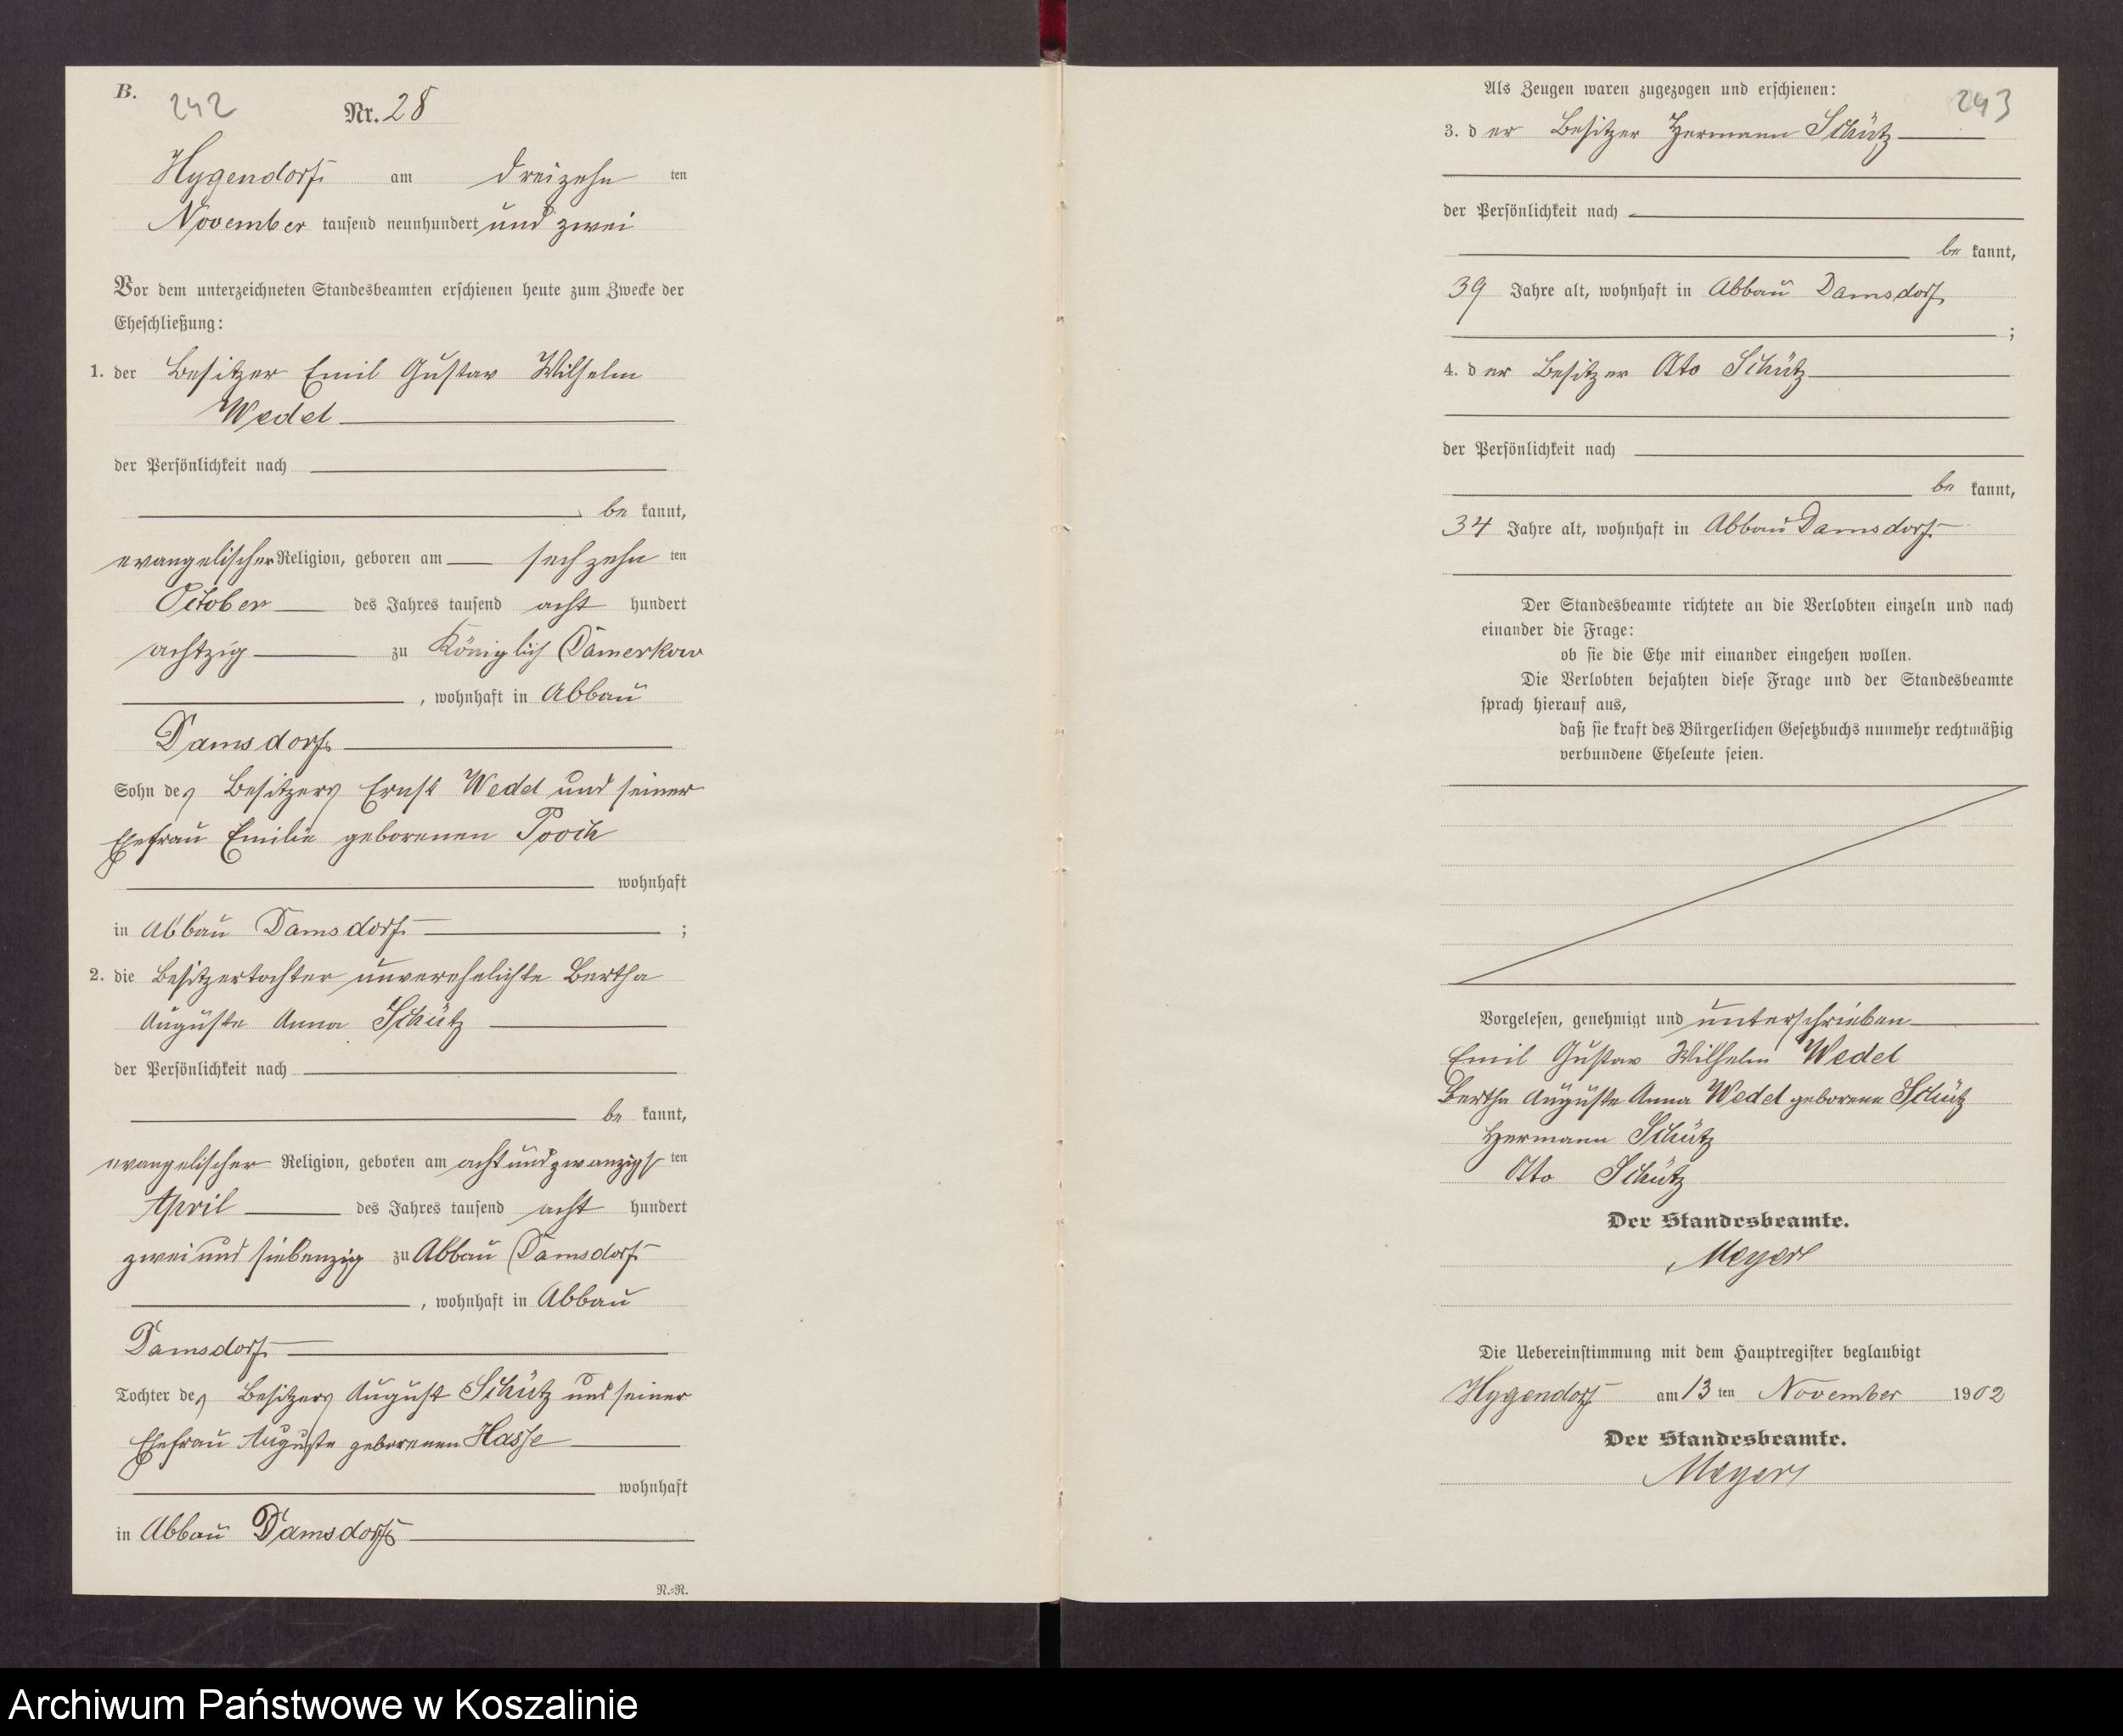 B.
242
Nr. 28
Hygendorf am dreizehn ten
November tausend neunhundert und zwei
Vor dem unterzeichneten Standesbeamten erschienen heute zum Zwecke der
Eheschließung:
1. der Besitzer Emil Gustav Wilhelm
Wedel
der Persönlichkeit nach
be kannt,
evangelischer Religion, geboren am sechzehn ten
October des Jahres tausend acht hundert
achtzig zu Königlich Damerkow
, wohnhaft in Abbau
Damsdorf
Sohn des Besitzers Ernst Wedel und seiner
Ehefrau Emilie geborenen Pooch
wohnhaft
in Abbau Damsdorf ;
2. die Besitzertochter unverehelichte Bertha
Auguste Anna Schütz
der Persönlichkeit nach
be kannt,
evangelischer Religion, geboren am achtundzwanzigs ten
April des Jahres tausend acht hundert
zwei und siebenzig zu Abbau Damsdorf
, wohnhaft in Abbau
Damsdorf
Tochter des Besitzers August Schütz und seiner
Ehefrau Auguste geborenen Hasse
wohnhaft
in Abbau Damsdorf
N.=R.
Als Zeugen waren zugezogen und erschienen:
243
3. d er Besitzer Hermann Schütz
der Persönlichkeit nach
be kannt,
39 Jahre alt, wohnhaft in Abbau Damsdorf
;
4. d er Besitzer Otto Schütz
der Persönlichkeit nach
be kannt,
34 Jahre alt, wohnhaft in Abbau Damsdorf
Der Standesbeamte richtete an die Verlobten einzeln und nach
einander die Frage:
ob sie die Ehe mit einander eingehen wollen.
Die Verlobten bejahten diese Frage und der Standesbeamte
sprach hierauf aus,
daß sie kraft des Bürgerlichen Gesetzbuchs nunmehr rechtmäßig
verbundene Eheleute seien.
Vorgelesen, genehmigt und unterschrieben
Emil Gustav Wilhelm Wedel
Bertha Auguste Anna Wedel geborene Schütz
Hermann Schütz
Otto Schütz
Der Standesbeamte.
Meyer
Die Uebereinstimmung mit dem Hauptregister beglaubigt
Hygendorf am 13 ten November 1902
Der Standesbeamte.
Meyer
Archiwum Państwowe w Koszalinie